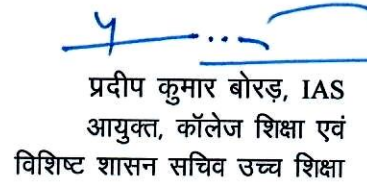 प्रदीप कुमार बोरड़, IAS
आयुक्त, कॉलेज शिक्षा एवं
विशिष्ट शासन सचिव उच्च शिक्षा